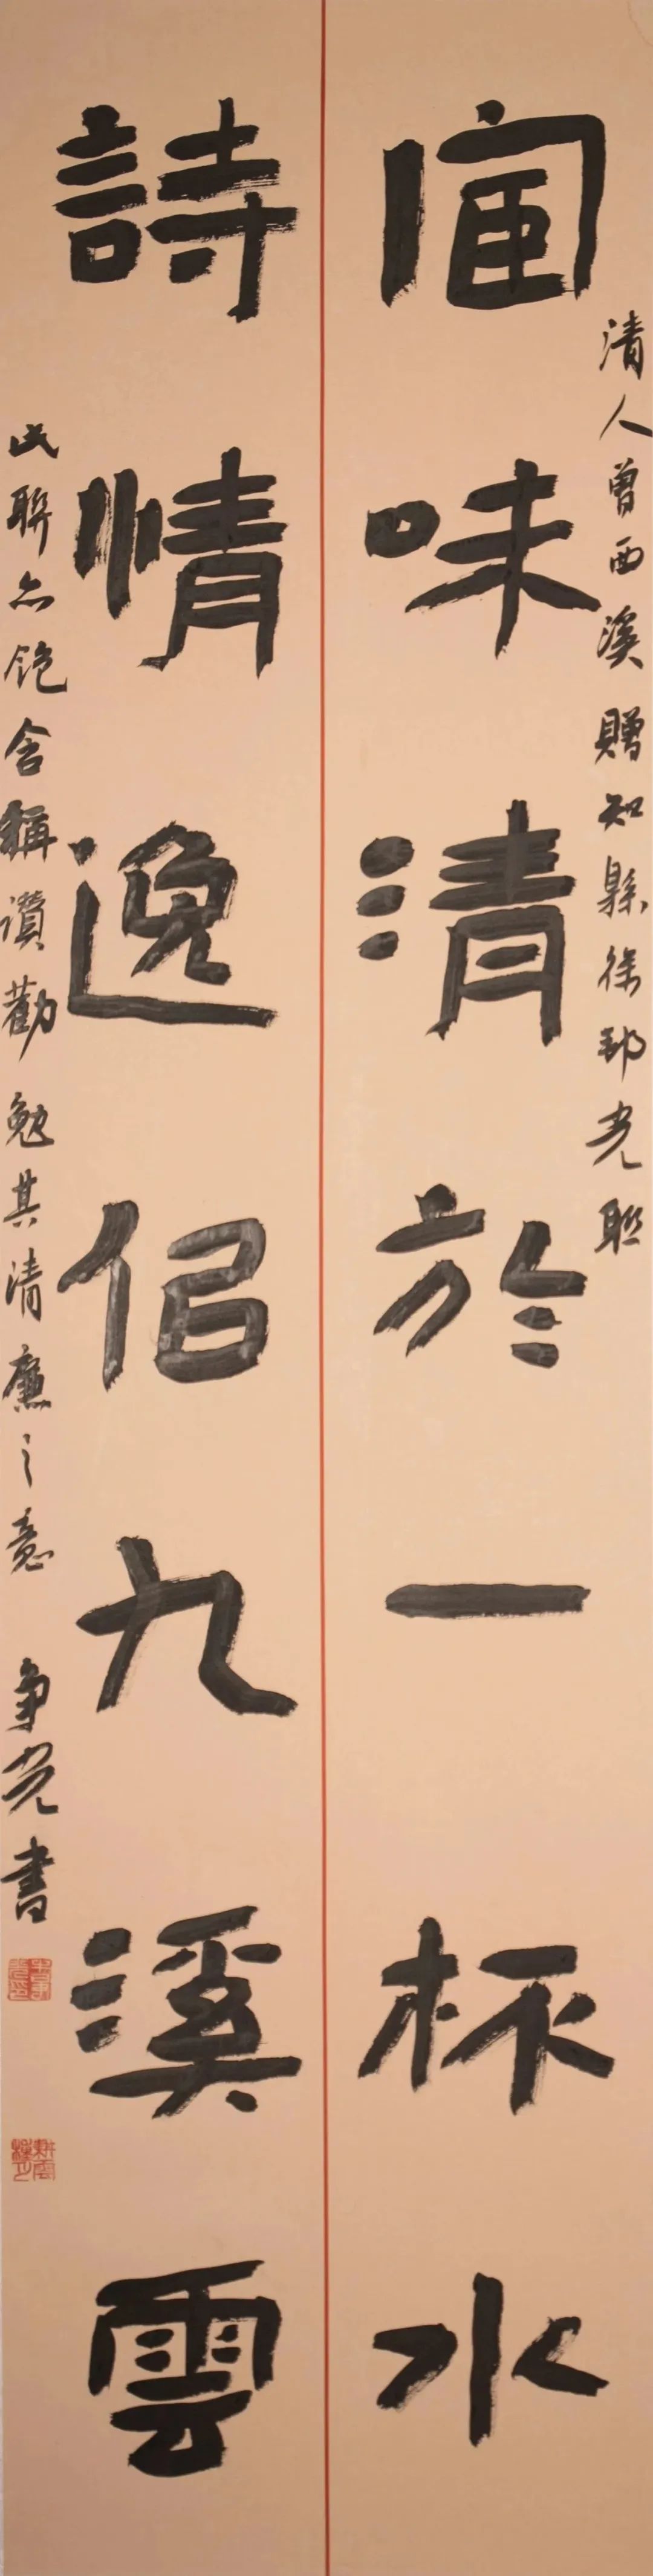 清人曾西溪贈知縣徐邦光联
宦味清於一杯水
詩情逸侣九溪雲
此联亦飽含稱讚勸勉其清廉之意 争光書